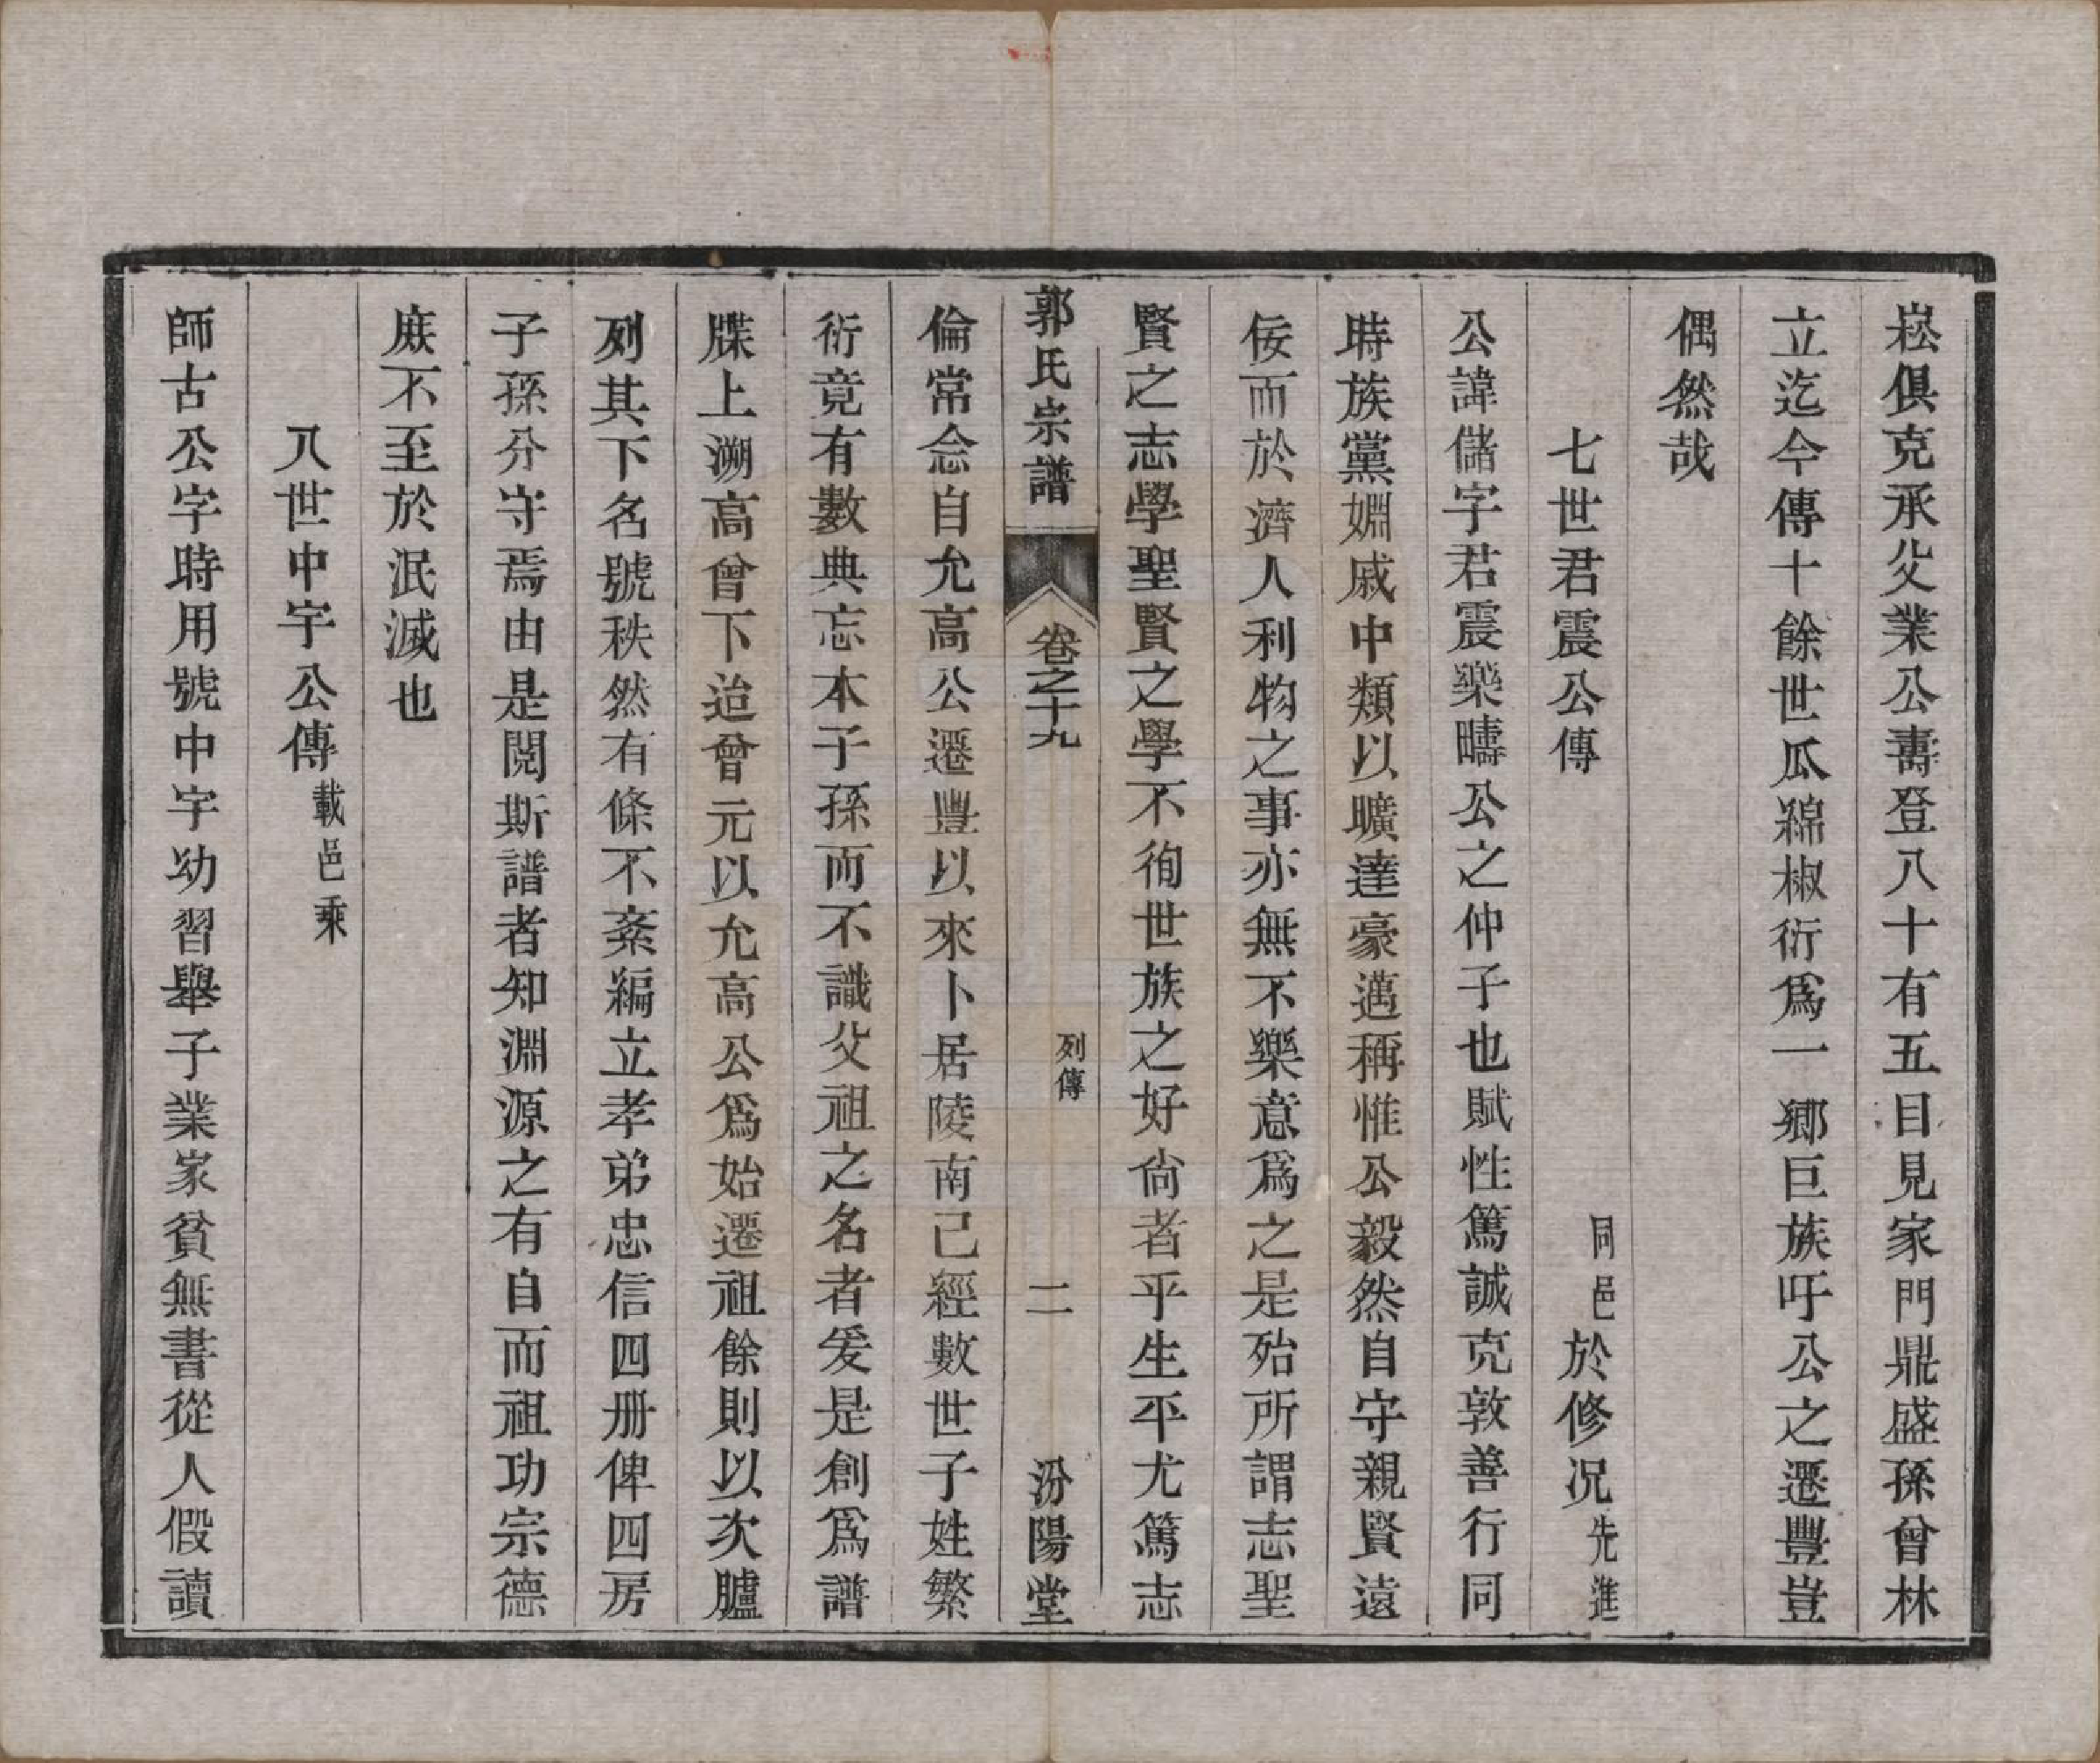 崧俱克承父業公壽登八十有五目見家門鼎盛孫曾林
立迄今傳十餘世瓜綿椒衍爲一鄉巨族吁公之遷豐豈
偶然哉
七世君震公傳 同邑於修况先進
公諱儲字君震樂疇公之仲子也賦性篤誠克敦善行同
時族黨婣戚中類以曠達豪邁稱惟公毅然自守親賢遠
佞而於濟人利物之事亦無不樂意爲之是殆所謂志聖
賢之志學聖賢之學不徇世族之好尙者乎生平尤篤志
郭氏宗譜 卷之十九 列傳 二 汾陽堂
倫常念自允高公遷豐以來卜居陵南己經數世子姓繁
衍竟有數典忘本子孫而不識父祖之名者爰是創爲譜
牒上溯高曾下迨曾元以允高公爲始遷祖餘則以次臚
列其下名號秩然有條不紊編立孝弟忠信四册俾四房
子孫分守焉由是閱斯譜者知淵源之有自而祖功宗德
庶不至於泯滅也
八世中宇公傳 載邑乘
師古公字時用號中宇幼習舉子業家貧無書從人假讀